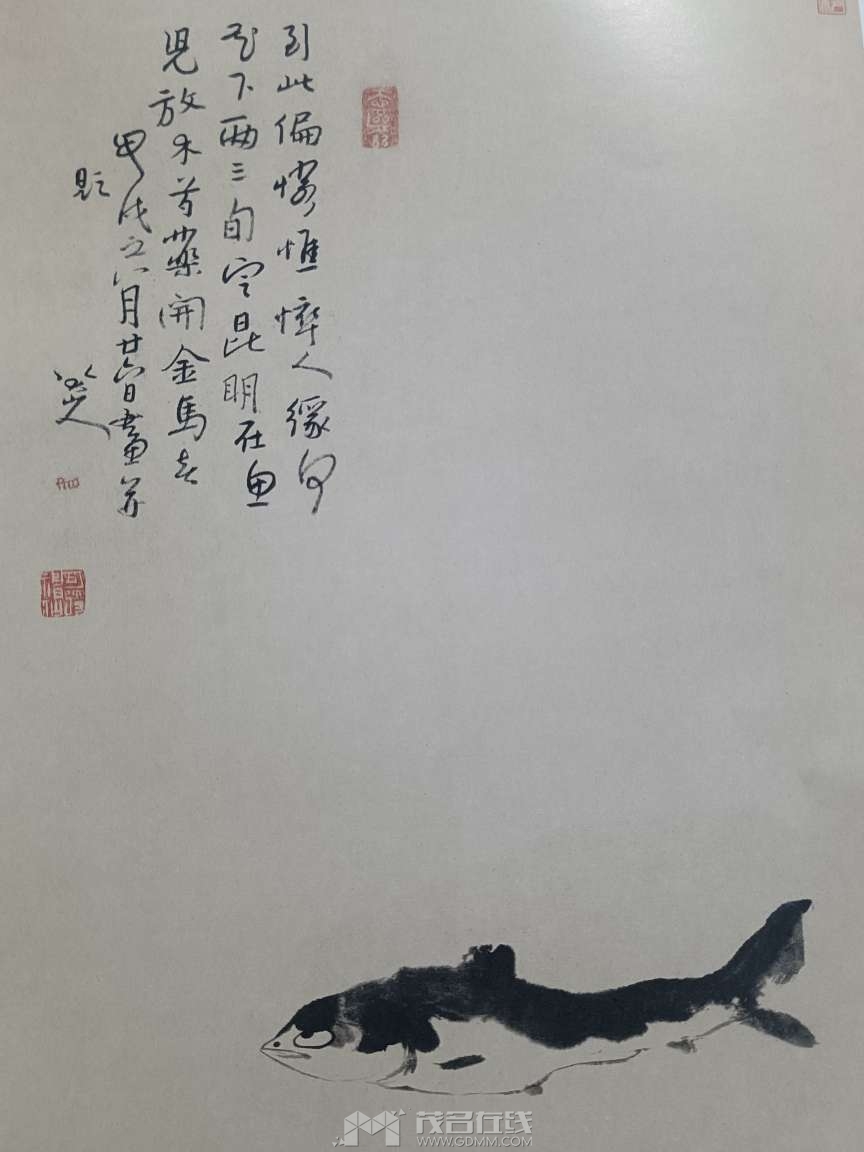 到此偏憐憔悴人緣何
花下兩三旬定昆明在魚
兒放木芍藥開金馬春
甲戌之六月廿六日畫并
題
八大山人
茂名在线
WWW.GDMM.COM